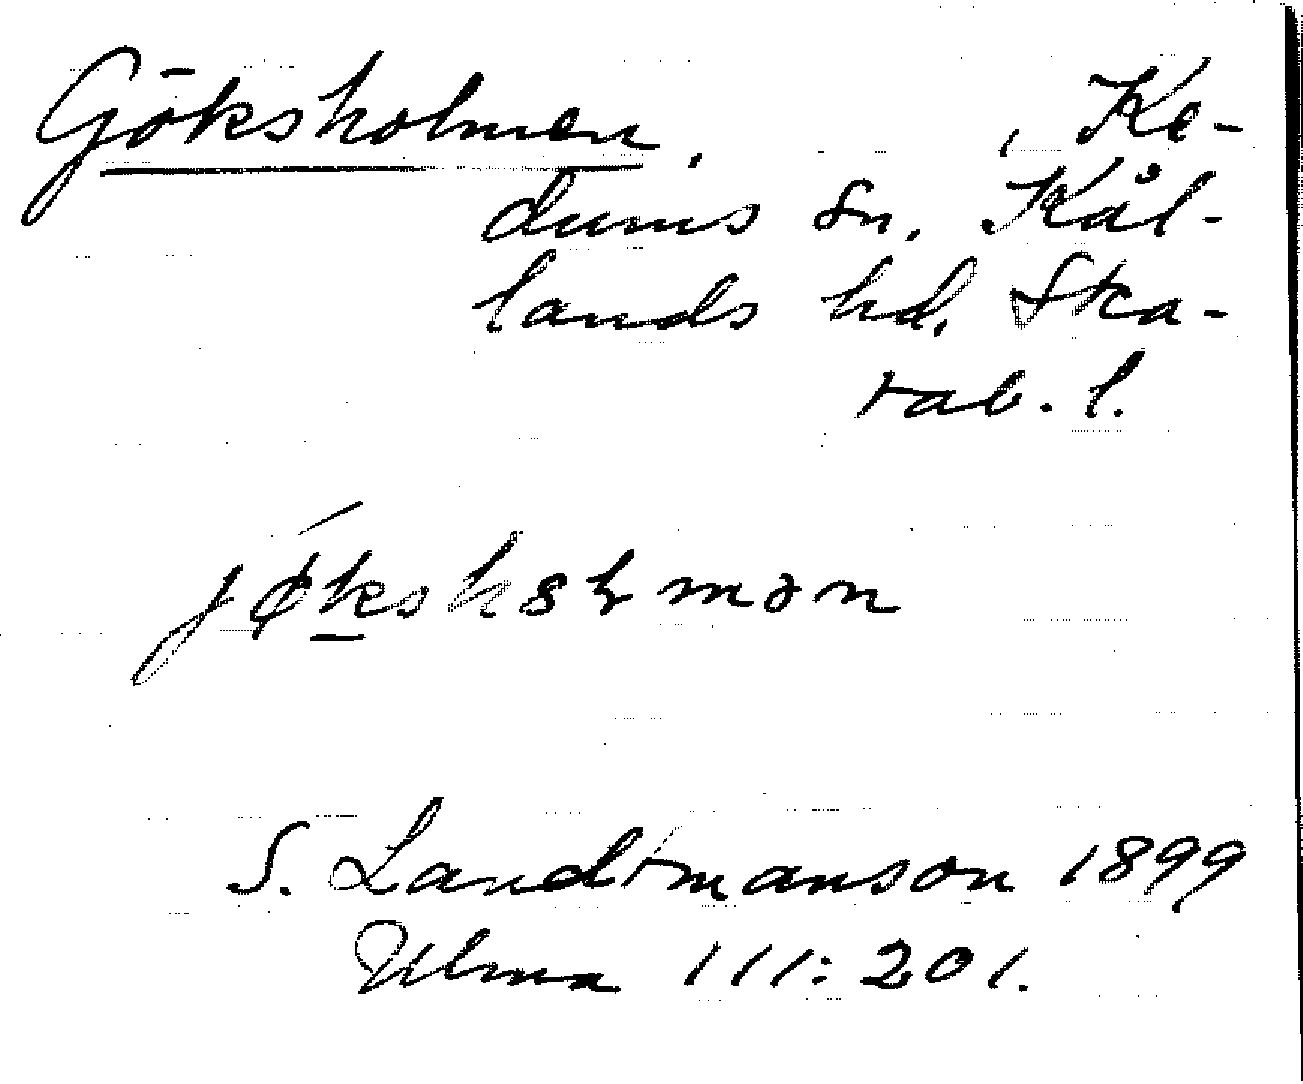 Göksholmen. , Ke-
dums sn. Kål-
lands hd. Ska-
rab. l.
S. Landtmanson 1899
Ulma 111:201.